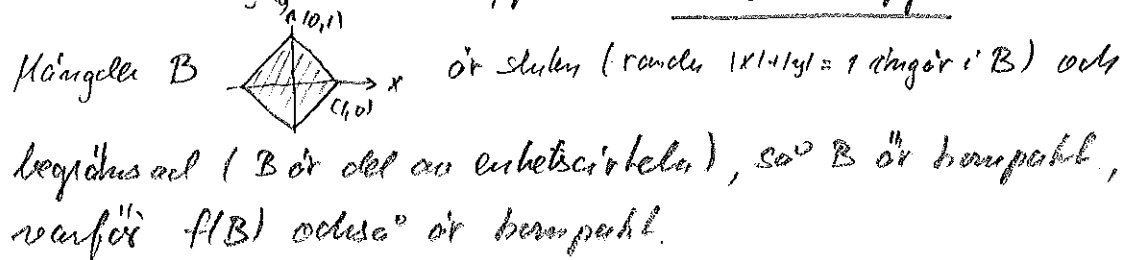 y (0,1)
Mängden B x (1,0) är sluten (randen |x|+|y| = 1 ingår i B) och
begränsad (B är del av enhetscirkeln), så B är kompakt,
varför f(B) också är kompakt.